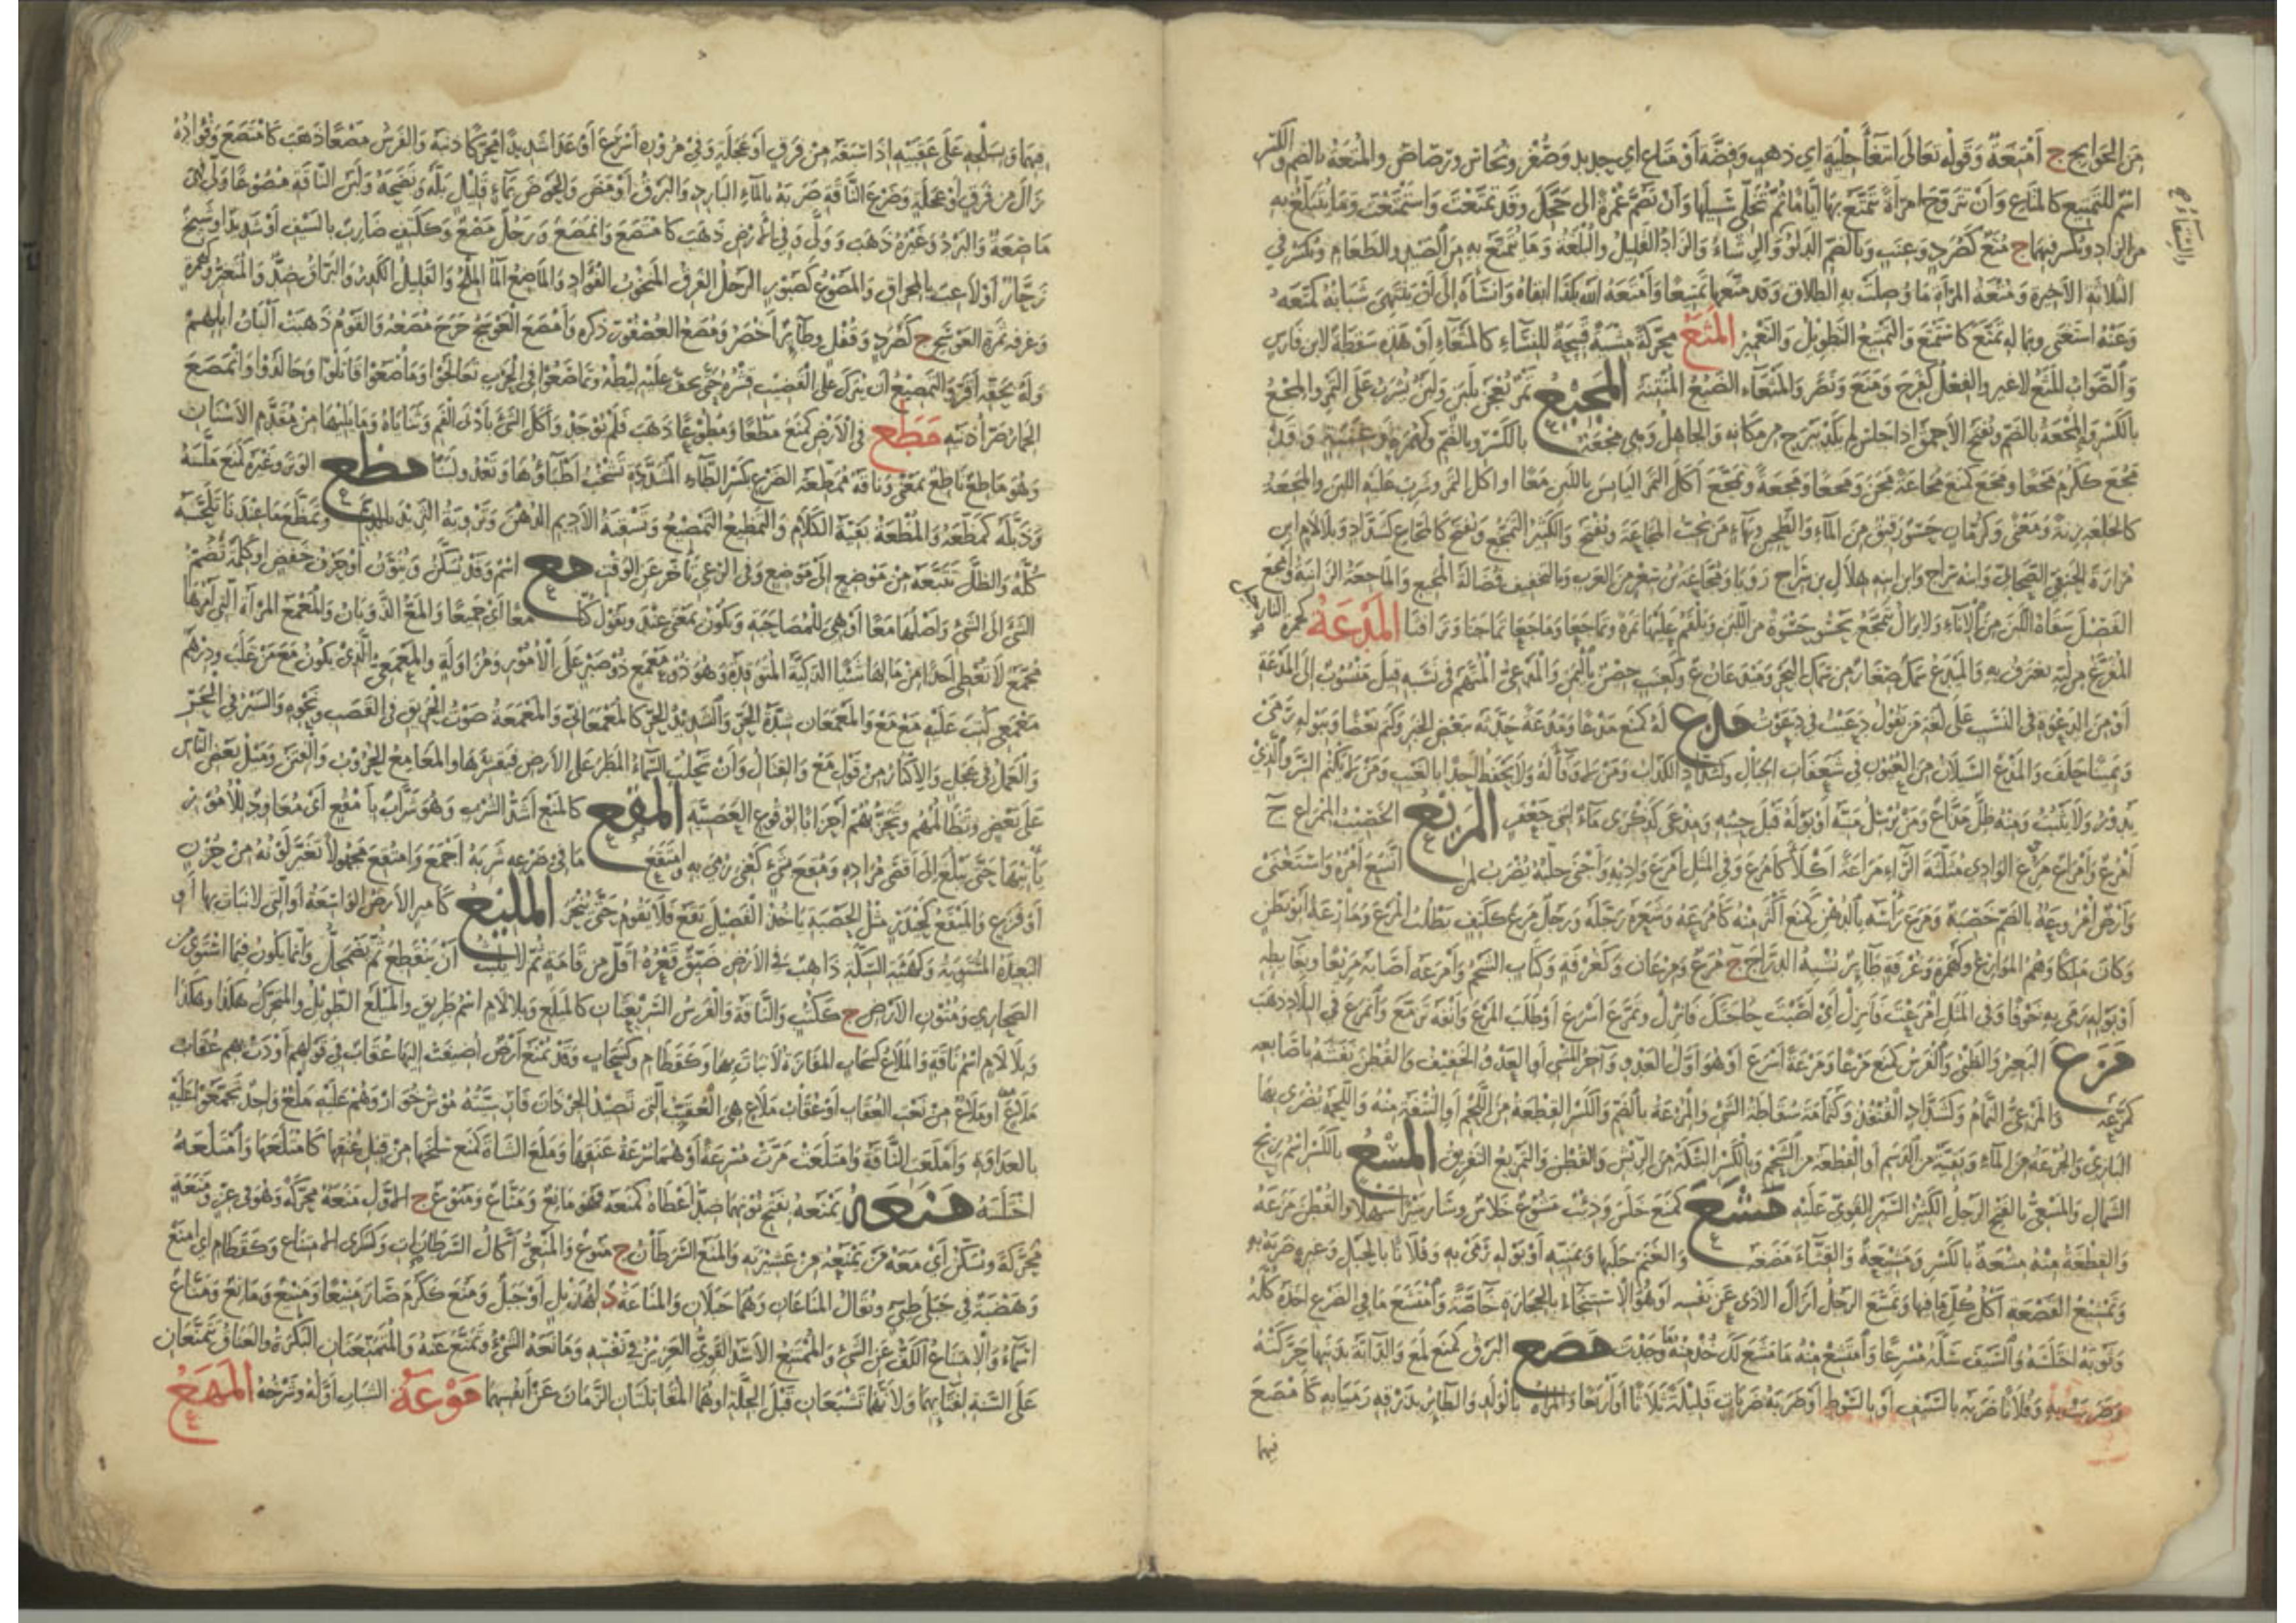 من الحوائج ج أمتعة وقوله تعالى ابتغاء حلية اي ذهب وفضة أو متاع اي حديد وصفر ونحاس ورصاص والمتعة بالضم والكسر
اسم للتمتيع كالمتاع وأن تتزوج امرأة تتمتع بها أياما ثم تخلي سبيلها وأن تضم عمرة الى حجك وقد تمتعت واستمتعت وما يتبلغ به
من الزاد ويكسر فيهما ج متع كصرد وعنب وبالضم الدلو والرشاء والزاد القليل والبلغة وما يتمتع به من الصيد والطعام ويكسر في
الثلاثة الأخيرة ومتعة المرأة ما وصلت به الطلاق وقد متعها تمتيعا وأمتعه الله بكذا ابقاه وانشأه إلى أن ينتهي شبابه كمتعه
وعنه استغنى وبما له تمتع كاستمتع والتمتيع التطويل والتعمير المثع محركة مشية قبيحة للنساء كالمثعاء أو هذه سقطة لابن فارس
والصواب المثع لا غير والفعل كفرح ومنع ونصر والمثعاء الضبع المنتنة المجيع تمر يعجن بلبن ولبن يشرب على التمر والمجع
بالكسر والمجعة بالضم ويفتح الأحمق إذا جلس لم يكد يبرح من مكانه والجاهل وهي مجعة بالكسر وبالضم وكهمزة وعنبة وقد
مجع ككرم مجعا ومجع كمنع مجاعة مجن ومجعا ومجعة وتمجع أكل التمر اليابس باللبن معا او اكل التمر وشرب عليه اللبن والمجعة
كالجلعة زنة ومعنى وكرمان حسو رقيق من الماء والطحين وبهاء من يحب المجاعة ويفتح والكثير التمجع ويفتح كالمجاع كشداد وبلا لام ابن
مرارة الحنفي الصحابي وابنه سراج وابن ابنه هلال بن سراج رويا ومجاعة بن سعر من العرب وبالتخفيف فضالة المجيع والماجعة الزانية وأمجع
الفصيل سقاه اللبن من الإناء ولا يزال يتمجع يحسو حسوة من اللبن ويلقم عليها تمرة وتماجعا وماجعا تماجنا وترافثا المدعة كهمزة النارجيل
المفرغ من لبه يغترف به والميدع سمك صغار من سمك البحر وميدعان ع وكعنب حصن باليمن والمدعي المتهم في نسبه قيل منسوب إلى المدعة
أو من الدعوة في النسب على لغة من يقول دعيت في دعوت مذع له كمنع مذعا ومذعة حدثه ببعض الخبر وكتم بعضا وببوله رمى
ويمينا حلف والمذع السيلان من العيون في شعفات الجبال وكشداد الكذاب ومن لا وفاء له ولا يحفظ أحدا بالغيب ومن لا يكتم السر والذي
يدور ولا يثبت ومنه ظل مذاع ومن يرسل منيه أو بوله قبل حينه ومذعى كذكرى ماء لبني جعفر المريع الخصيب كالمراع ج
أمرع وأمراع مرع الوادي مثلثة الراء مراعة أكلأ كأمرع وفي المثل أمرع واديه وأجنى حلبه يضرب لمن اتسع أمره واستغنى
وأرض أمروعة بالضم خصبة ومرع رأسه بالدهن كمنع أكثر منه كأمرعه وشعره رجله ورجل مرع ككتف يطلب المرع ومارعة أبو بطن
وكان ملكا وهم الموارع وكهمزة وغرفة طائر يشبه الدراج ج مرع ومرعان وكغرفة وكتاب الشحم وأمرعه أصابه مريعا وبغائطه
أو بوله رمى به خوفا وفي المثل أمرعت فانزل أي أصبت حاجتك فانزل وتمرع أسرع أو طلب المرع وأنفه ترمع وانمرع في البلاد ذهب
مزع البعير والظبي والفرس كمنع مزعا ومزعة أسرع أو هو أول العدو وآخر المشي أو العدو الخفيف والقطن نفشه باصابعه
كمزعه والمزعي النمام وكشداد القنفذ وكثمامة سقاطة الشيء والمزعة بالضم والكسر القطعة من اللحم أو النتفة منه واللحمة يضرى بها
البازي والجرعة من الماء وبقية من الدسم أو القطعة من الشحم وبالكسر الشكة من الريش والقطن والتمزيع التفريق المسع بالكسر اسم ريح
الشمال والمسعي بالفتح الرجل الكثير السير القوي عليه مشع كمنع خلس وذئب مشوع خلاس وسار سيرا سهلا والقطن مزعه
والقطعة منه مشعة بالكسر ومشيعة والقثاء مضغه والغنم حلبها وبمنيه أو بوله رمى به وفلانا بالحبل وغيره ضربه به
وتمشيع القصعة أكل كل ما فيها وتمشع الرجل أزال الأذى عن نفسه أو هو الاستنجاء بالحجارة خاصة وامتشع ما في الضرع اخذه كله
وثوبه اختلسه والسيف سله مسرعا وامتشع منه ما مشع لك خذ منه ما وجدت مصع البرق كمنع لمع والدابة بذنبها حركته
وضربت به وفلانا ضربه بالسيف أو بالسوط أو ضربه ضربات قليلة ثلاثا أو أربعا والمرأة بالولد والطائر بذرقه رميا به كأمصع
فيهما
فيهما وبسلحه على عقبيه اذا سبقه من فرق أو عجلة وفي مروره أسرع أو عدا شديدا محركا ذنبه والفرس مصعا ذهب كامتصع وفؤاده
زال من فرق أو عجلة وضرع الناقة ضربه بالماء البارد والبرق أومض والحوض بماء قليل بله ونضحه ولبن الناقة مصوعا ولى فهي
ماصعة والبرد وغيره ذهب وولى وفي الأرض ذهب كامتصع وانمصع ورجل مصع وككتف ضارب بالسيف أو شديد او شيخ
زحار أو لاعب بالمخراق والمصوع كصبور الرجل الفرق المنخوب الفؤاد والماصع الماء الملح والقليل الكدر والبراق ضد والمتغير وكهمزة
وغرفة ثمرة العوسج ج كصرد وقفل وطائر أخضر ومصع العصفور ذكره وأمصع العوسج خرج مصعه والقوم ذهبت ألبان ابلهم
وله بحقه أقر والتمصيع أن يترك على القضيب قشره حتى يجف عليه ليطه وتماصعوا في الحرب تعالجوا وماصعوا قاتلوا وجالدوا وانمصع
الحمار صر أذنيه مطع في الأرض كمنع مطعا ومطوعا ذهب فلم يوجد وأكل الشيء بأدنى الفم وثناياه وما يليها من مقدم الأسنان
وهو ماطع ناطع بمعنى وناقة ممطعة الضرع بكسر الطاء المشددة تشخب أطباؤها وتغذو لبنا مظع الوتر وغيره كمنع ملسه
وذبله كمظعه والمظعة بقية الكلام والتمظيع التمصيع وتسقية الأديم الدهن وتروية الثريد بالدسم وتمظع ما عندنا تلحسه
كله والظل تتبعه من موضع إلى موضع وفي الرعي تأخر عن الوقت مع اسم وقد يسكن وينون أو حرف خفض أو كلمة تضم
الشيء الى الشيء وأصلها معا أو هي للمصاحبة وتكون بمعنى عند وتقول كنا معا أي جميعا والمع الذوبان والمعمع المرأة التي أمرها
مجمع لا تعطي احدا من مالها شيئا الذكية المتوقدة وهو ذو معمع ذو صبر على الأمور ومزاولة والمعمعي الذي يكون مع من غلب ودرهم
معمعي كتب عليه مع مع والمعمعان شدة الحر والشديد الحر كالمعمعاني والمعمعة صوت الحريق في القصب ونحوه والسير في الحر
والعمل في عجل والإكثار من قول مع والقتال وأن تحلب السماء المطر على الأرض فيقشرها والمعامع الحروب والفتن وميل بعض الناس
على بعض وتظالمهم وتحزبهم أحزابا لوقوع العصبية المقع كالمنع أشد الشرب وهو شراب بأمقع أي معاود للأمور
يأتيها حتى يبلغ إلى أقصى مراده ومقع بشيء كعني رمي به وامتقع ما في ضرعه شربه أجمع وامتقع مجهولا تغير لونه من حزن
أو فزع والمقع كجدر مثل الحصبة يأخذ الفصيل يقع فلا يقوم حتى ينحر المليع كأمير الأرض الواسعة أو التي لا نبات بها أو
البعيدة المستوية وكهيئة السكة ذاهب في الأرض ضيق قعره أقل من قامة ثم لا يلبث أن ينقطع ثم يضمحل وإنما يكون فيما استوى من
الصحاري ومتون الأرض ج ككتب والناقة والفرس السريعتان كالميلع وبلا لام اسم طريق والميلع الطويل والمتحرك هكذا وهكذا
وبلا لام اسم ناقة والملاع كسحاب المفازة لا نبات بها وكقطام وكسحاب وقد تمنع أرض أضيفت إليها عقاب في قولهم أودت بهم عقاب
ملاع أو ملاع من نعت العقاب أو عقاب ملاع هي العقيب التي تصيد الجرذان فارسيته موش خوار وهم عليه ملع واحد تجمعوا عليه
بالعداوة وأملعت الناقة وامتلعت مرت مسرعة أو هما سرعة عنقها وملع الشاة كمنع سلخها من قبل عنقها كامتلعها وامتلعه
اختلسه منعه يمنعه بفتح نونهما ضد أعطاه كمنعه فهو مانع ومناع ومنوع ج الأول منعة محركة وهو في عز ومنعة
محركة ويسكن أي معه من يمنعه من عشيرته والمنع السرطان ج منوع والمنعي أكال السرطانات وكسكرى الامتناع وكقطام اي امنع
وهضبة في جبلي طيئ ويقال المناعان وهما جبلان والمناعة د لهذيل أو جبل ومنع ككرم صار منيعا ومنيع ومانع ومناع
أسماء والامتناع الكف عن الشيء والممتنع الأسد القوي العزيز في نفسه ومانعه الشيء وتمنع عنه والمتمنعتان البكرة والعناق تمتنعان
على السنة لفتائهما ولأنهما تشبعان قبل الجلة أو هما المقاتلتان الزمان عن أنفسهما موعة الشباب أوله وشرخه المهع